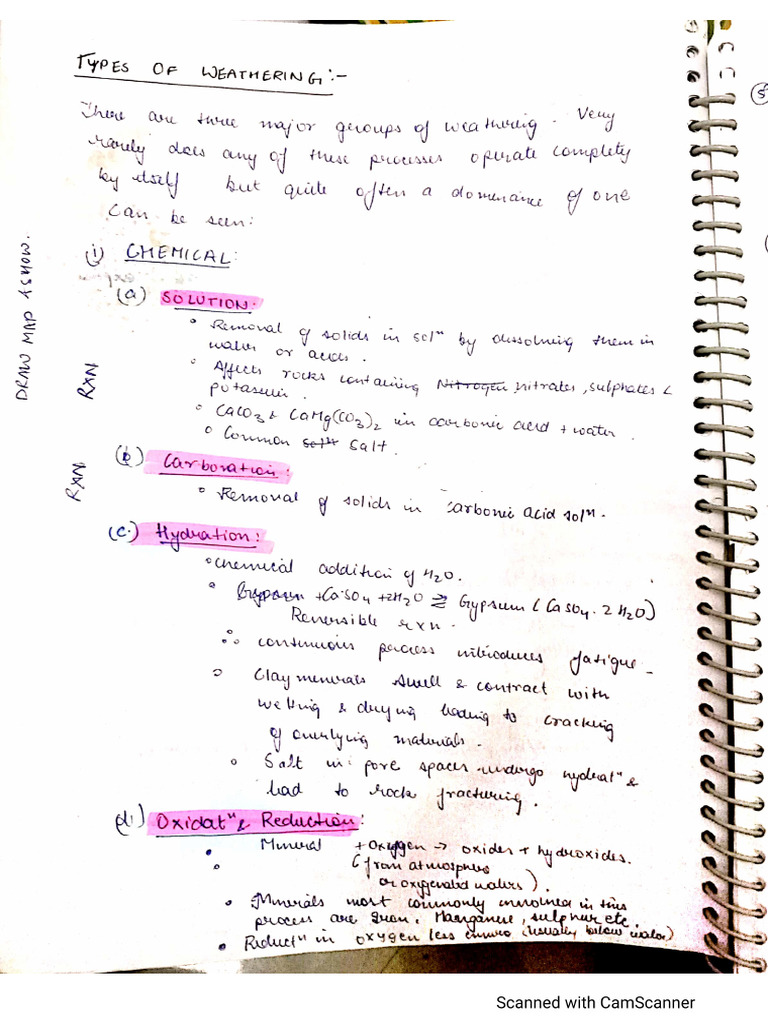 TYPES OF WEATHERING :-
There are three major groups of weathering. Very
rarely does any of these processes operate completely
by itself but quite often a dominance of one
can be seen:
(i) CHEMICAL:
(a) SOLUTION.
◦ Removal of solids in solⁿ by dissolving them in
water or acids.
◦ Affects rocks containing Nitrogen nitrates, sulphates &
potassium.
◦ CaCO3 & CaMg(CO3)2 in carbonic acid + water.
◦ Common salt.
(b) Carbonation:
◦ Removal of solids in carbonic acid solⁿ.
(c.) Hydration:
◦ Chemical addition of H2O.
◦ Gypsum + CaSO4 + 2H2O ⇌ Gypsum (CaSO4. 2H2O)
Reversible rxn.
∴ continuous process introduces fatigue
◦ Clay minerals swell & contract with
wetting & drying leading to cracking
of overlying materials.
◦ Salt in pore spaces undergo hydratⁿ &
lead to rock fracturing.
(d.) Oxidatⁿ & Reduction:
• Mineral + Oxygen → oxides + hydroxides.
(from atmosphere
or oxygenated waters).
• Minerals most commonly involved in this
process are Iron, Manganese, sulphur etc.
• Reductⁿ in oxygen less enviro (usually below water)
DRAW MAP & SHOW.
RXN
RXN
5
Scanned with CamScanner